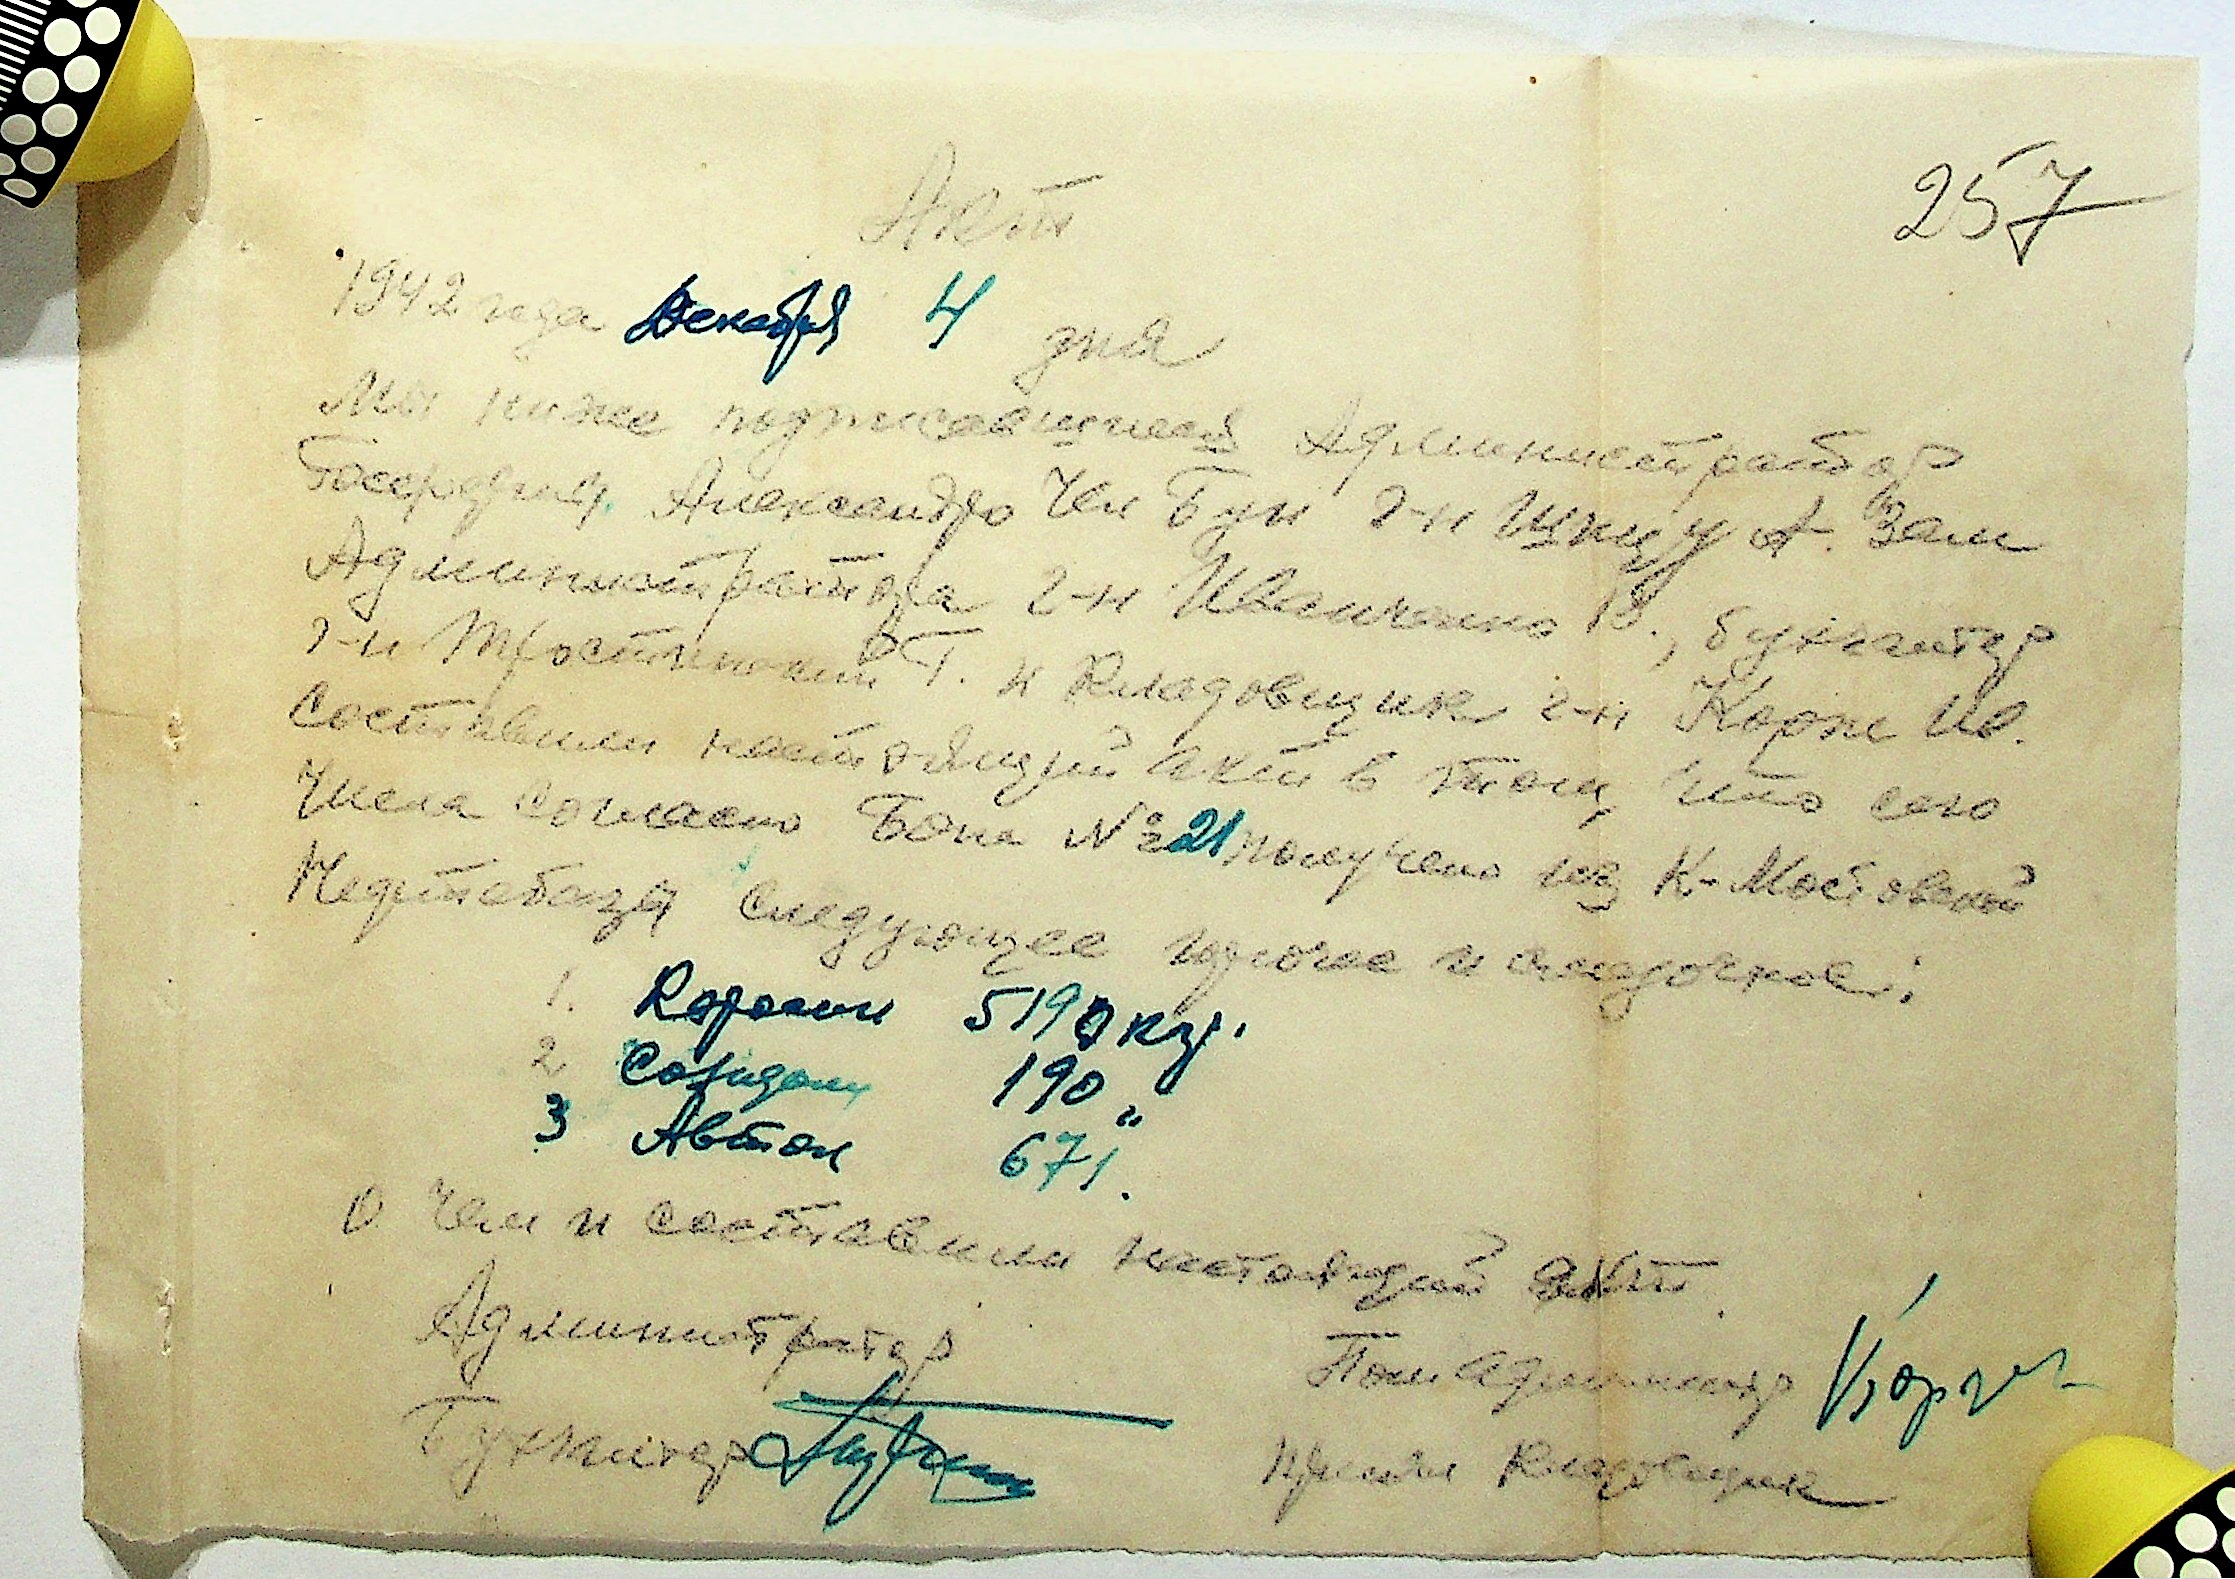 257
Акт
1942 года Декабря 4 дня
Мы ниже подписавшиеся Администратор
Александро г-н А. Зам
Администратора г-н Иванченко В., бухгалтер
г-н Т. и Кладовщик г-н Корж Ив.
Составили настоящий акт в том, что сего
Числа согласно Бона № 21 получено из К-Мостовской
Нефтебазы следующее горючее и смазочное:
1. Керосин 5190 кгр.
2 Солидол 190 "
3 Автол 671.
О чем и составили настоящий акт.
Администратор
Пом Администр
Бухгалтер
Принял Кладовщик